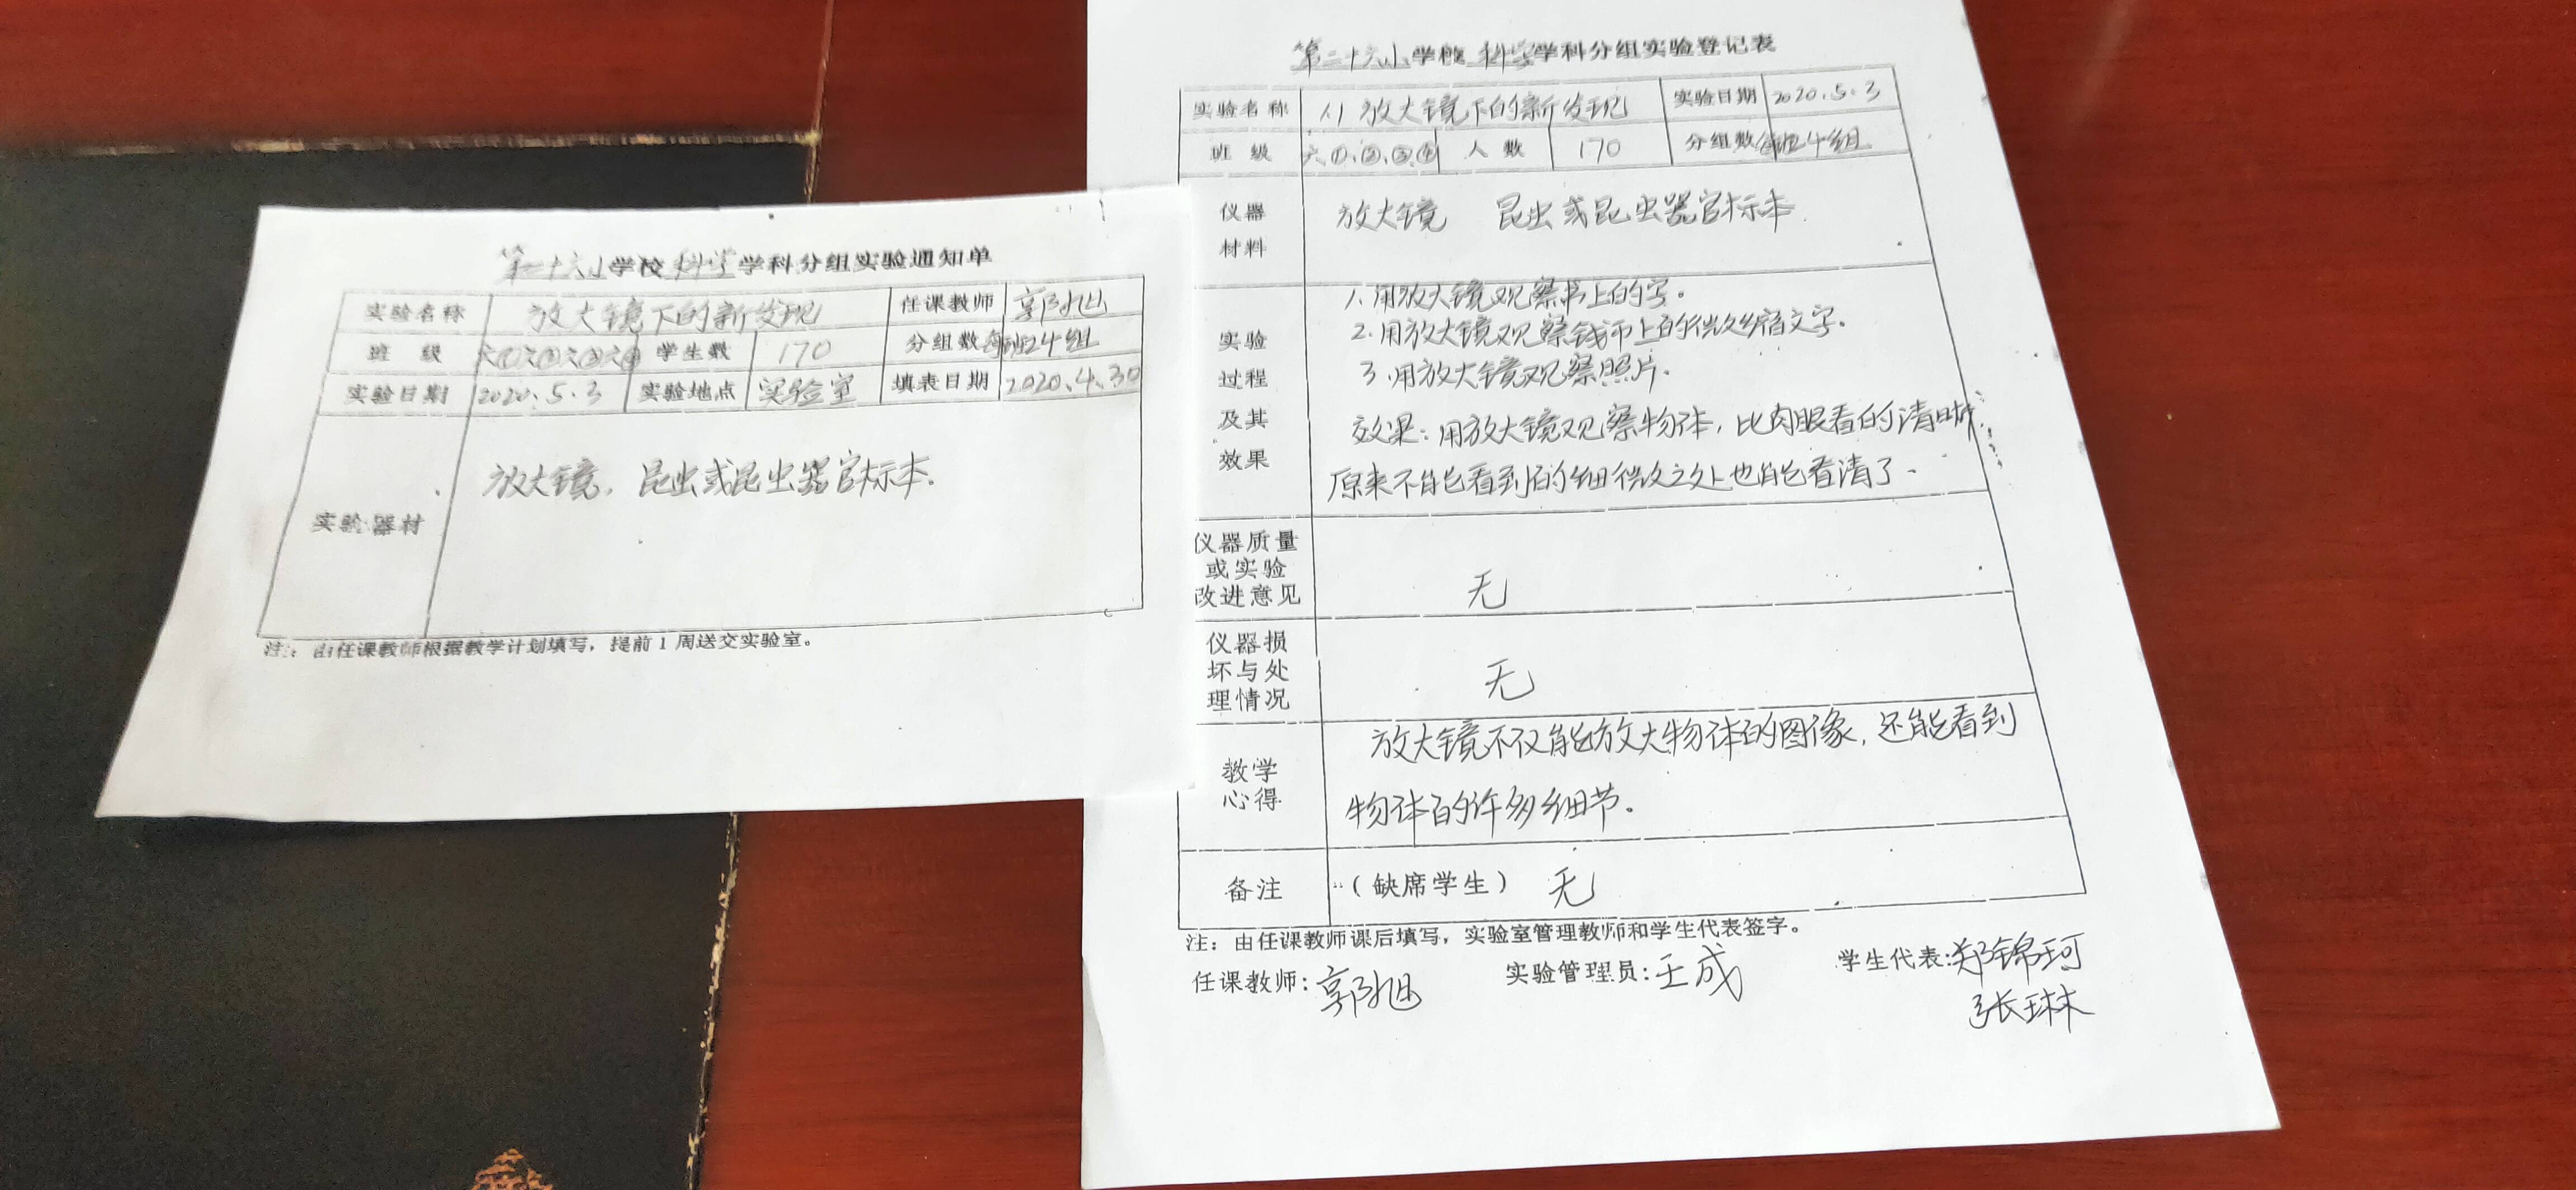 第二十六小学校 科学学科分组实验通知单
实验名称 放大镜下的新发现 任课教师 郭旭
班 级 六①六②六③六④ 学生数 170 分组数 每班24组
实验日期 2020.5.3 实验地点 实验室 填表日期 2020.4.30
实验器材 放大镜,昆虫或昆虫器官标本.
注: 由任课教师根据教学计划填写,提前1周送交实验室。
第二十六小学校 科学学科分组实验登记表
实验名称 1.1 放大镜下的新发现 实验日期 2020.5.3
班 级 六①、②、③、④ 人 数 170 分组数 每班24组
仪器材料 放大镜 昆虫或昆虫器官标本.
实验过程及其效果
1.用放大镜观察书上的字。
2.用放大镜观察钱币上的微缩文字。
3.用放大镜观察照片.
效果:用放大镜观察物体,比肉眼看的清晰,
原来不能看到的细微之处也能看清了.
仪器质量或实验改进意见 无
仪器损坏与处理情况 无
教学心得
放大镜不仅能放大物体的图像,还能看到
物体的许多细节.
备注 (缺席学生) 无
注:由任课教师课后填写,实验室管理教师和学生代表签字。
任课教师:郭旭 实验管理员:王成 学生代表:郑锦珂
张琳